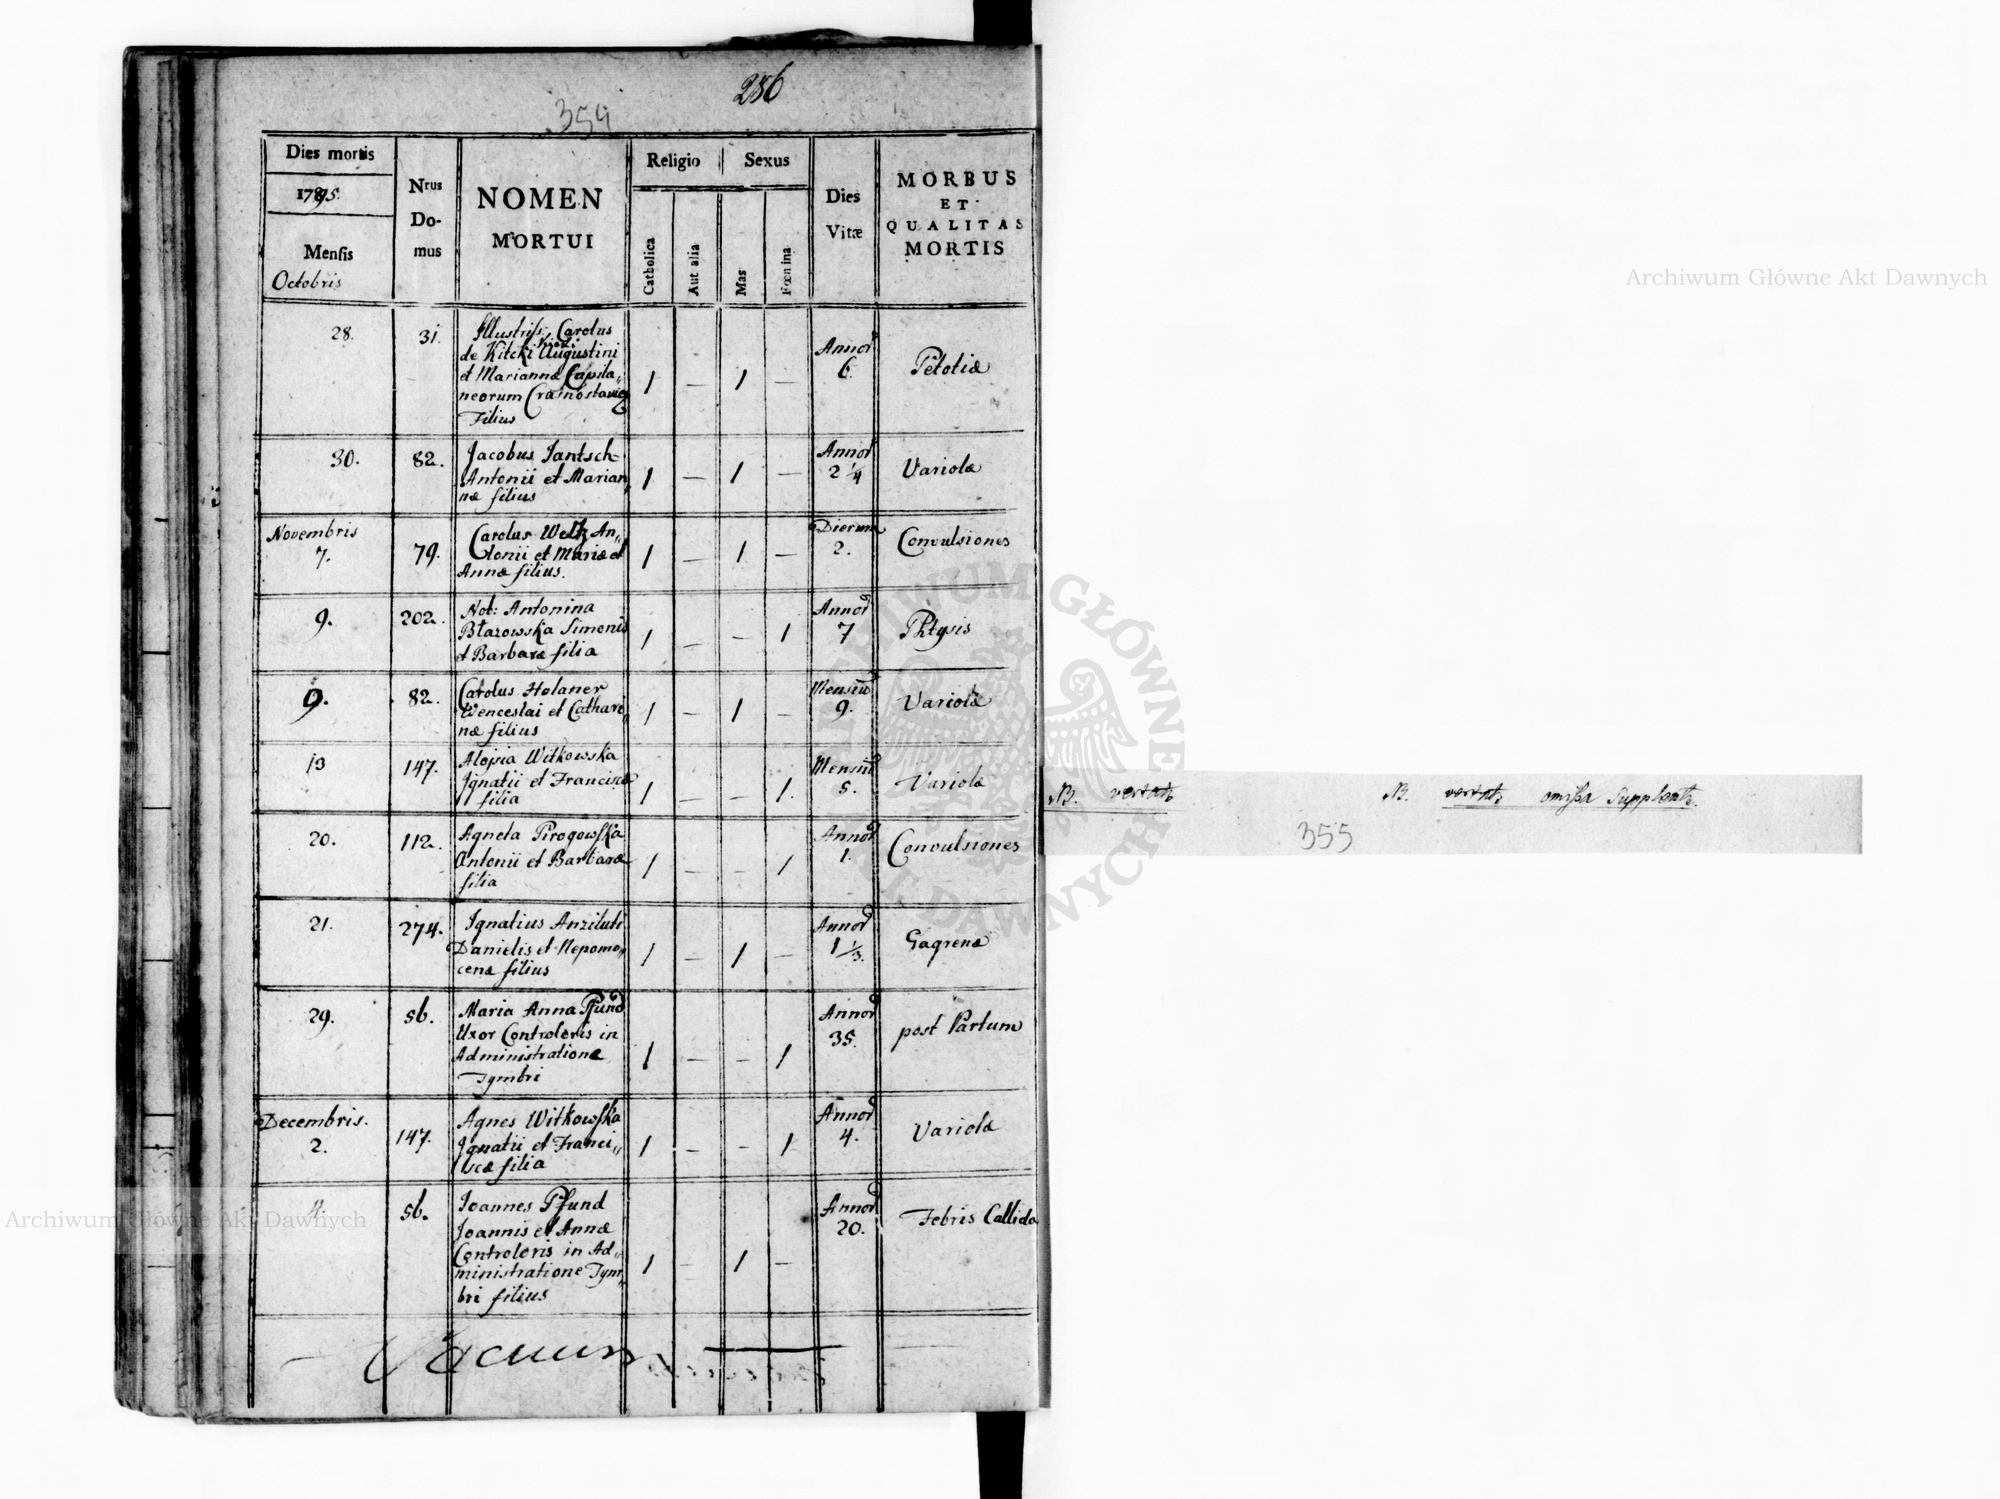 286
354
Dies mortis
1795.
Mensis
Octobris
Nrus
Do-
mus
NOMEN
MORTUI
Religio
Sexus
Catholica
Aut alia
Mas
Fœmina
Dies
Vitæ
MORBUS
ET
QUALITAS
MORTIS
28. 31.
Illustriss: Carolus
de Kitcki Augustini
et Mariannæ Capita„
neorum
Filius
1 — 1 —
Annor
6.
Petotiæ
30. 82.
Jacobus Jantsch
Antonii et Marian„
næ filius
1 — 1 —
Annor
2 1/4
Variolæ
Novembris
7. 79.
Carolus Weltz An„
tonii et Mariæ et
Annæ filius.
1 — 1 —
Dierum
2.
Convulsiones
9. 202.
Nob: Antonina
Błazowska Simonis
et Barbaræ filia
1 — — 1
Annor
7
Phtysis
9. 82.
Carolus Holaner
Wenceslai et Cathari„
næ filius
1 — 1 —
Mensiu
9.
Variolæ
13 147.
Alojsia Witkowska
Ignatii et Franciscæ
filia
1 — — 1.
Mensiu
5.
Variolæ
20. 112.
Agneta Pirogowska
Antonii et Barbaræ
filia
1 — — 1
Annor
1.
Convulsiones
21. 274.
Ignatius Anziluti
Danielis et Nepomo„
cenæ filius
1 — 1 —
Annor
1 1/3.
Gagrenæ
29. 56.
Maria Anna Pfund
Uxor Controloris in
Administratione
Tymbri
1 — — 1
Annor
35.
post Partum
Decembris.
2. 147.
Agnes Witkowska
Ignatii et Franci„
scæ filia
1 — — 1
Annor
4.
Variolæ
4. 56.
Joannes Pfund
Joannis et Annæ
Controloris in Ad„
ministratione Tym„
bri filius
1 — 1 —
Annor
20.
Febris Callida
Vacuum
NB.
NB. omissa
355
Archiwum Główne Akt Dawnych
Archiwum Główne Akt Dawnych
ARCHIWUM GŁÓWNE AKT DAWNYCH